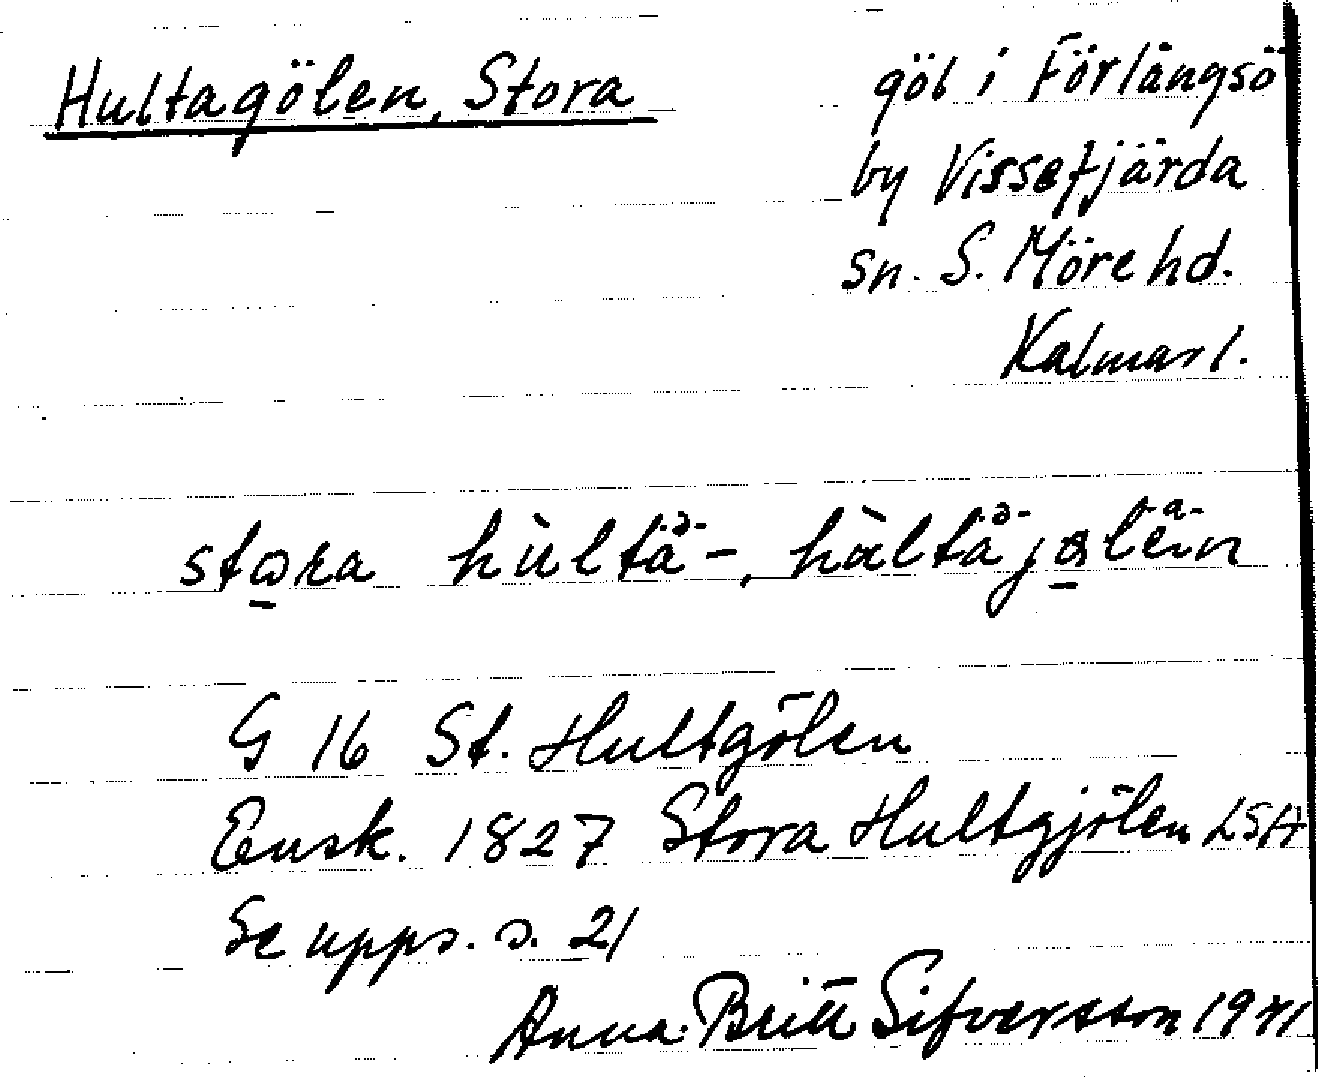 Hultagölen, Stora
göl i Förlångsö
by Vissefjärda
sn. S. Möre hd.
Kalmar l.
stora hùltä-, hùltäjɵlen
G 16 St. Hultgölen
Ensk. 1827 Stora Hultgjölen LSA
Se upps. s. 21
Anna-Britt Sifversson 1941